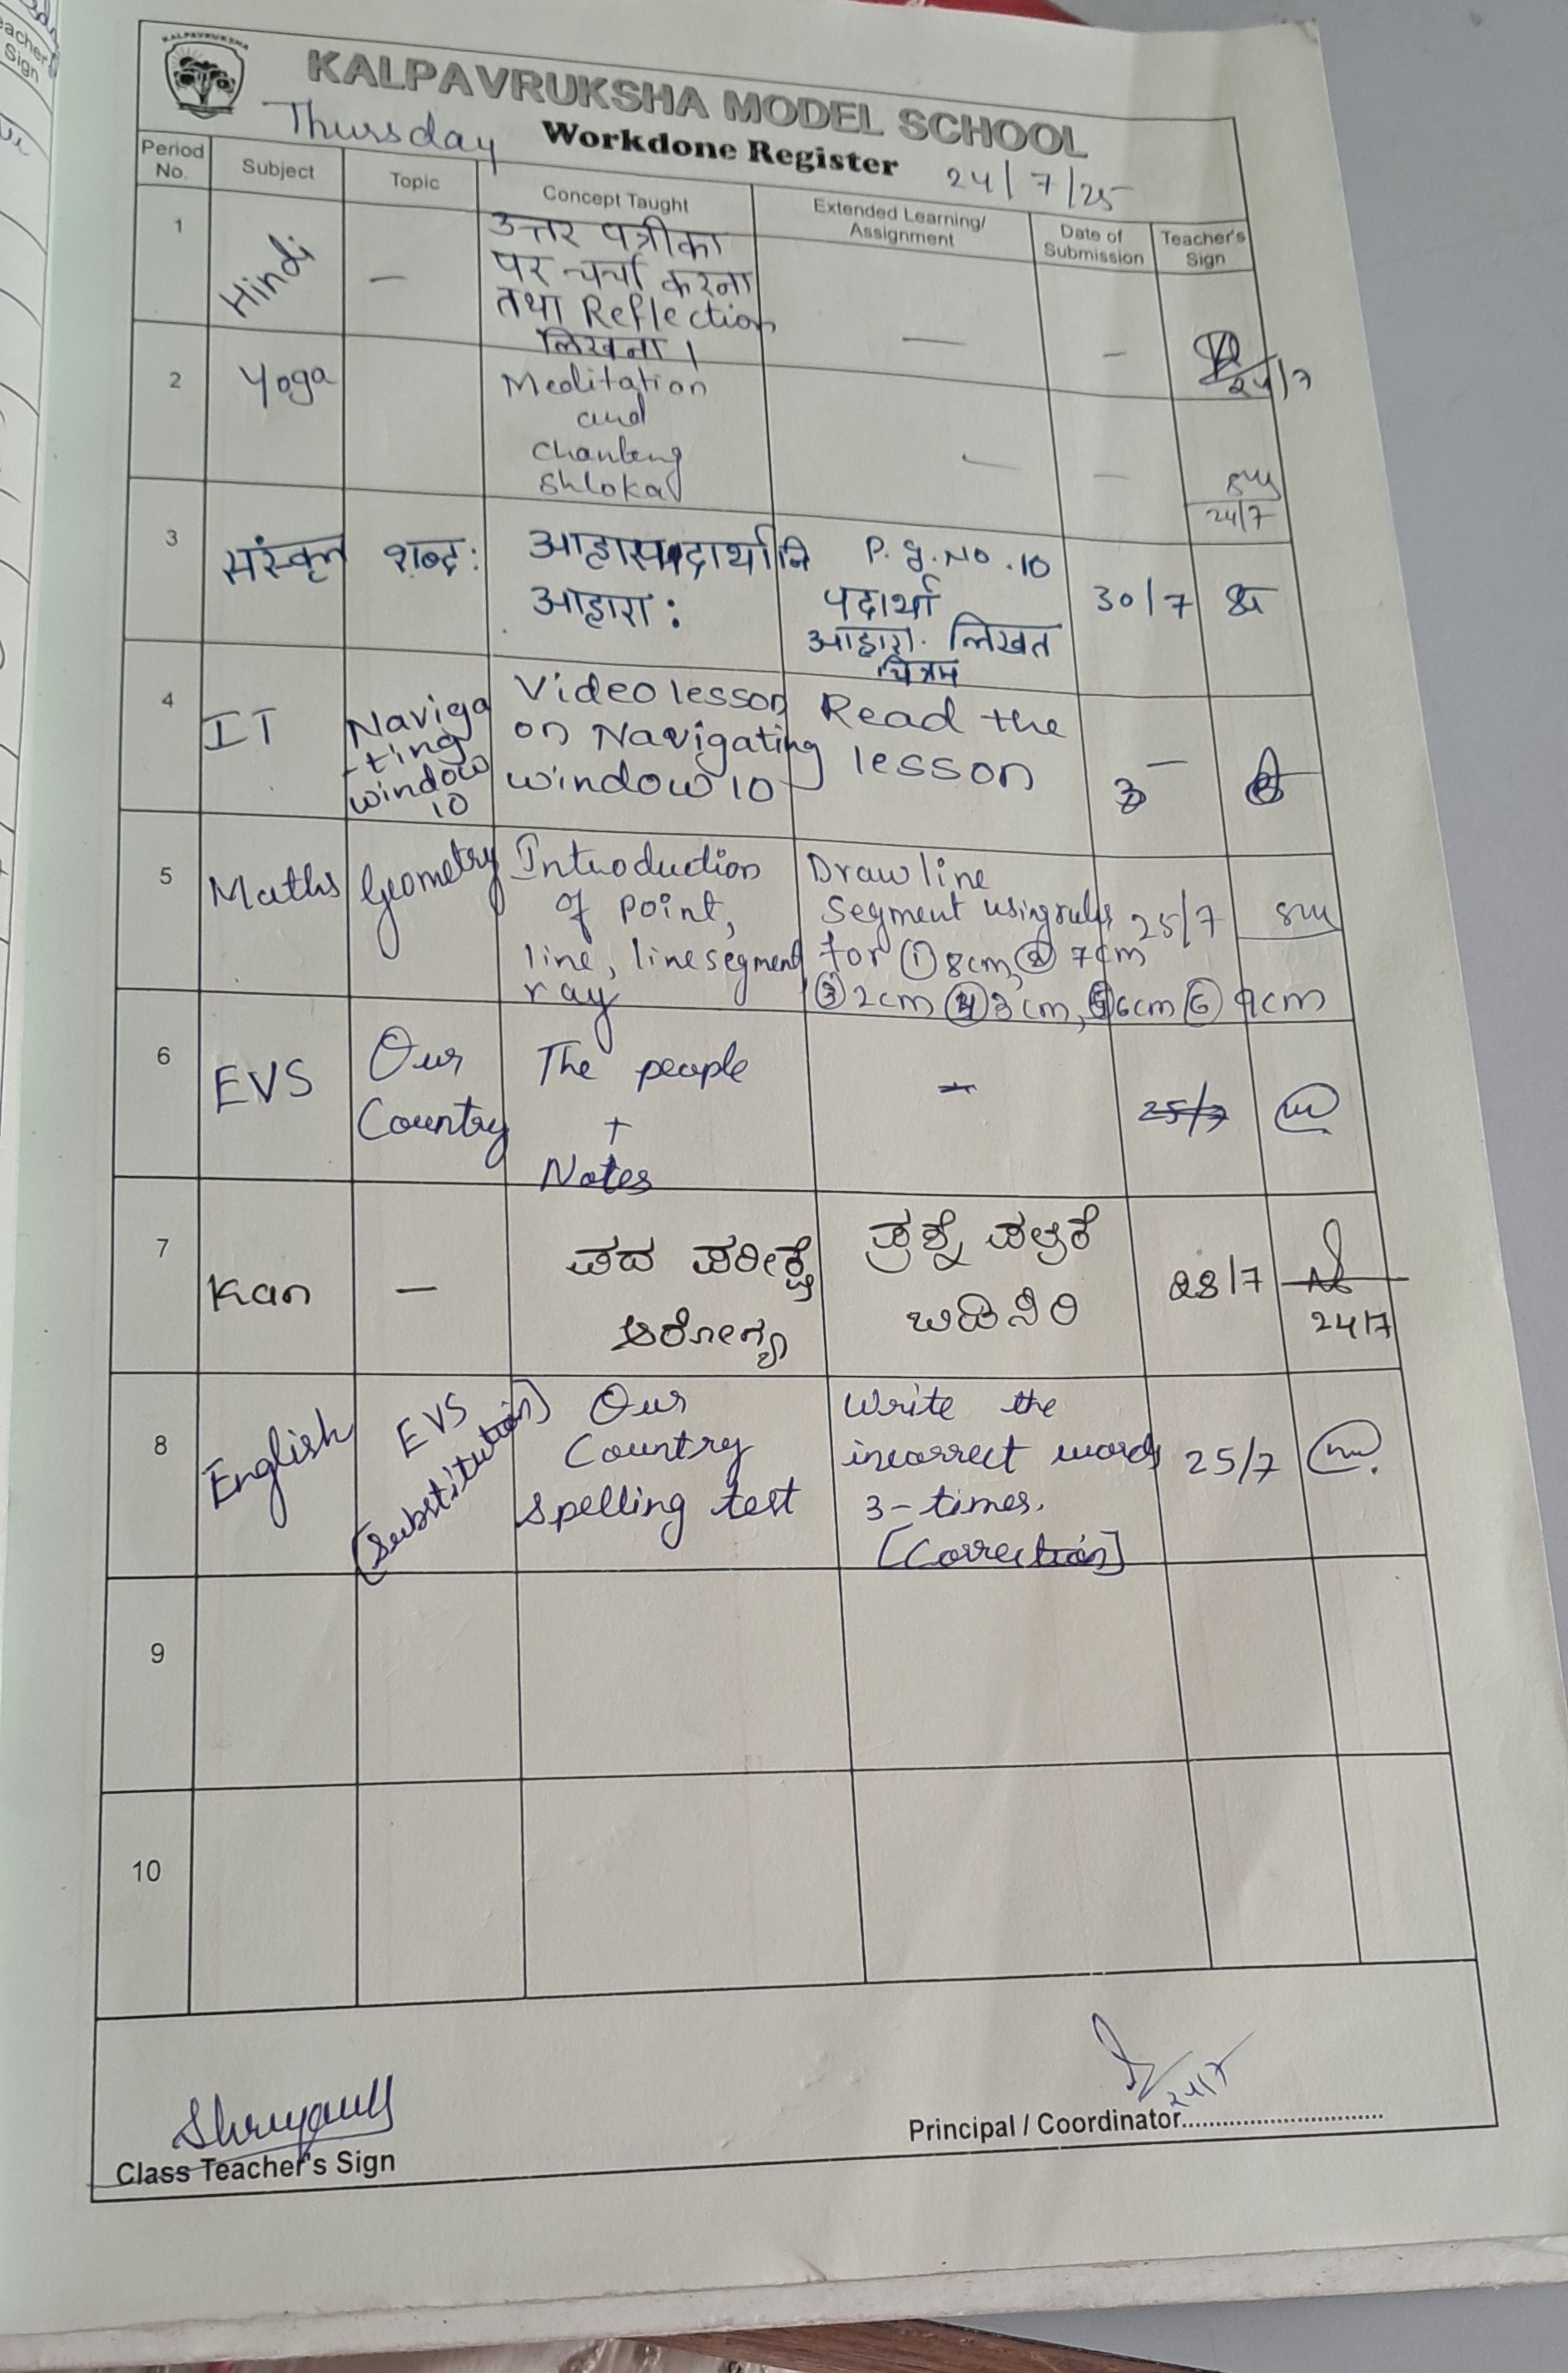 KALPAVRUKSHA
KALPAVRUKSHA MODEL SCHOOL
Thursday Workdone Register 24/7/25
Period No. Subject Topic Concept Taught Extended Learning/ Assignment Date of Submission Teacher's Sign
1 Hindi — उत्तर पत्रीका
पर चर्चा करना
तथा Reflection
लिखना । — —
24/7
2 Yoga Meditation
and
Chanting
Shloka — —
24/7
3 संस्कृत शब्द: आहारपदार्थानि P.g.No.10
आहारा: पदार्था 30/7
आहारा: लिखत
चित्रम
4 IT Naviga
-ting
window
10 Video lesson
on Navigating
window 10 Read the
lesson —
5 Maths Geometry Introduction
of point,
line, line segment
ray Draw line
segment using ruler
for ① 8cm, ② 7cm
③ 2cm ④ 3cm, ⑤ 6cm ⑥ 9cm 25/7
6 EVS Our
Country The people
+
Notes — 25/7
7 Kan — ಪದ ಪರೀಕ್ಷೆ
ಆರೋಗ್ಯ ಪ್ರಶ್ನೆ ಪತ್ರಿಕೆ
28/7
24/7
8 English EVS
[Substitution] Our
Country
spelling test Write the
incorrect words
3-times.
[Correction] 25/7
9
10
24/7
Class Teacher's Sign Principal / Coordinator..............................
Teacher's
Sign